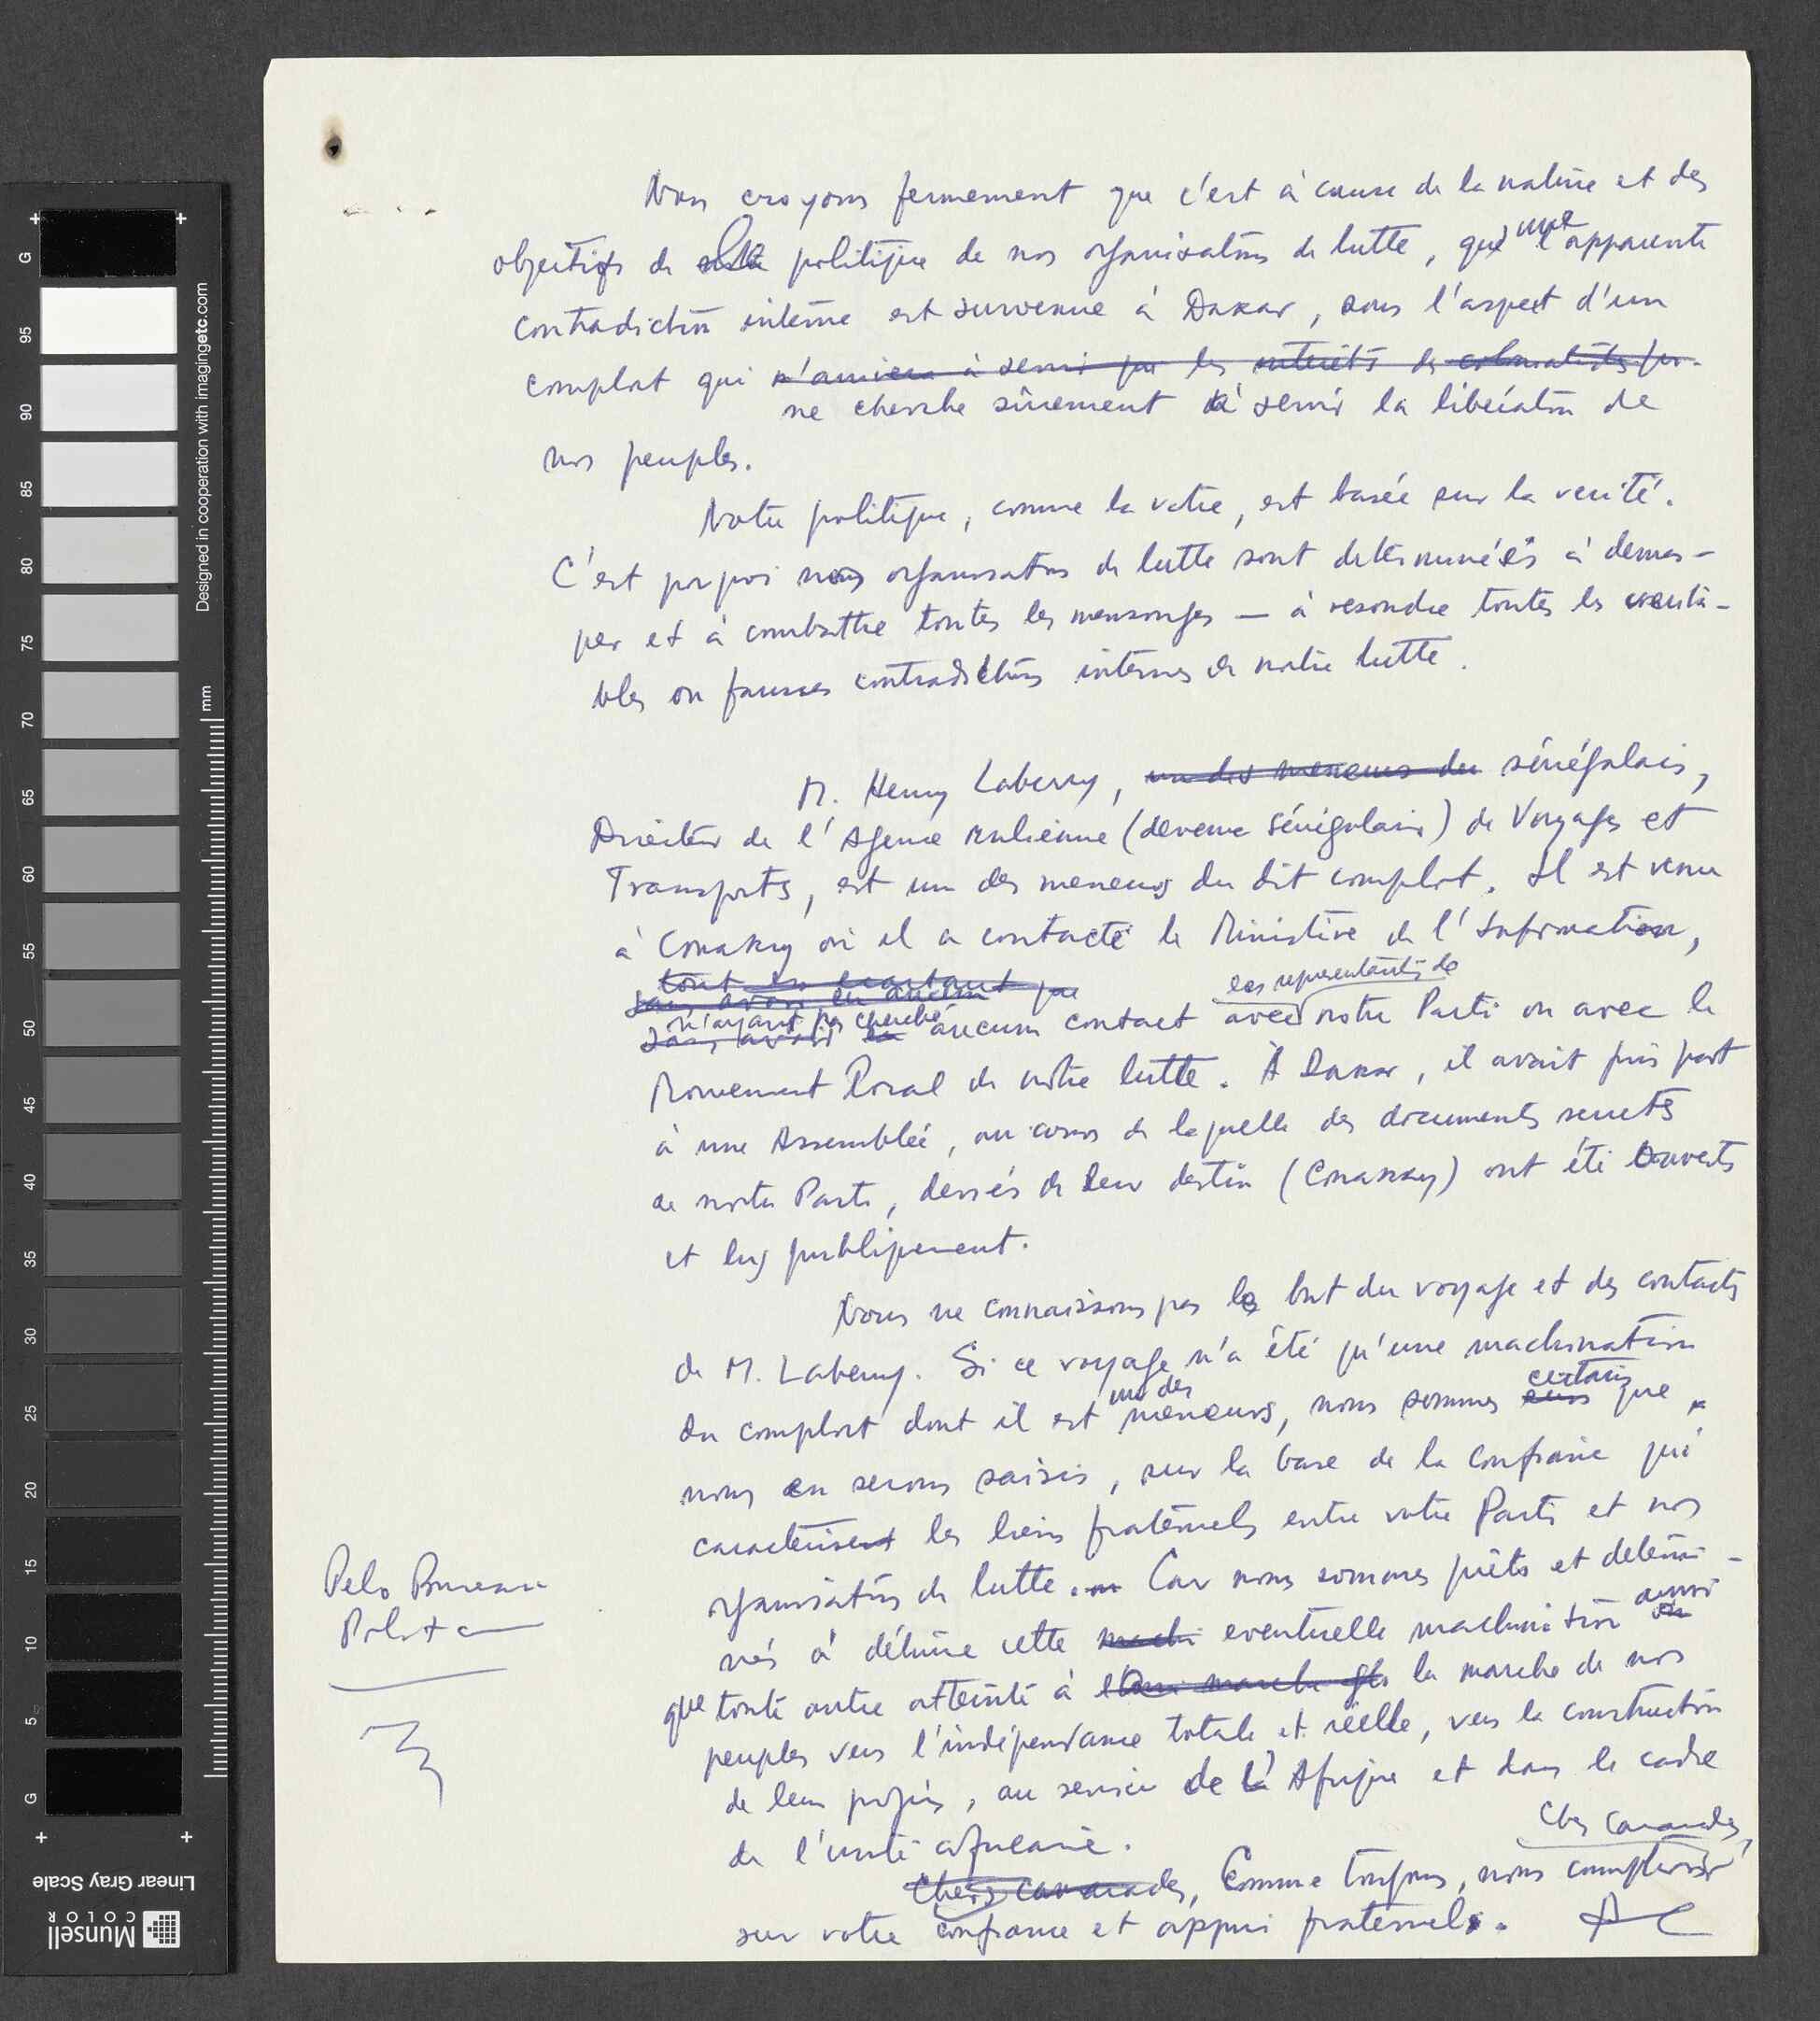 Nous croyons fermement que c'est à cause de la nature et des
objectifs de la politique de nos organisations de lutte, que une apparente
contradiction interne est survenue à Dakar, sous l'aspect d'un
complot qui n'arrivera à servir que les interêts des colonialistes por-
ne cherche sûrement à servir la libération de
nos peuples.
Notre politique, comme la votre, est basée sur la verité.
C'est pourquoi nos organisations de lutte sont determinées à demas-
quer et à combattre toutes les mensonges — à resoudre toutes les verita-
bles ou fausses contradictions internes de notre lutte.
M. Henry Labery, un des meneurs du sénégalais,
Directeur de l'Agence malienne (devenue sénégalaise) de Voyages et
Transports, est un des meneurs du dit complot. Il est venu
à Conakry où il a contacté le Ministère de l'Information,
tout en ecartant que
sans avoir eu aucun
n'ayant pas cherché les representants de
sans avoir eu aucun contact avec notre Parti ou avec le
Mouvement Local de notre lutte. À Dakar, il avait pris part
à une Assemblée, au cours de laquelle des documents secrets
de notre Parti, deviés de leur destin (Conakry) ont été ouverts
et lus publiquement.
Nous ne connaissons pas le but du voyage et des contacts
de M. Labery. Si ce voyage n'a été qu'une machination
du complot dont il est un des meneurs, nous sommes surs certains que
nous en serons saisis, sur la base de la confiance qui
caracterisent les liens fraternels entre votre Parti et nos
organisations de lutte. Car nous sommes prêts et determi-
nés à détruire cette machi eventuelle machination aussi
que toute autre atteinte à la marche de nos
peuples vers l'indépendance totale et réelle, vers la construction
de leur progrès, au service de l'Afrique et dans le cadre
de l'unité africaine.
Chers camarades,
Chers camarades, Comme toujours, nous comptons
sur votre confiance et appui fraternels. AC
Pelo Bureau
Polit